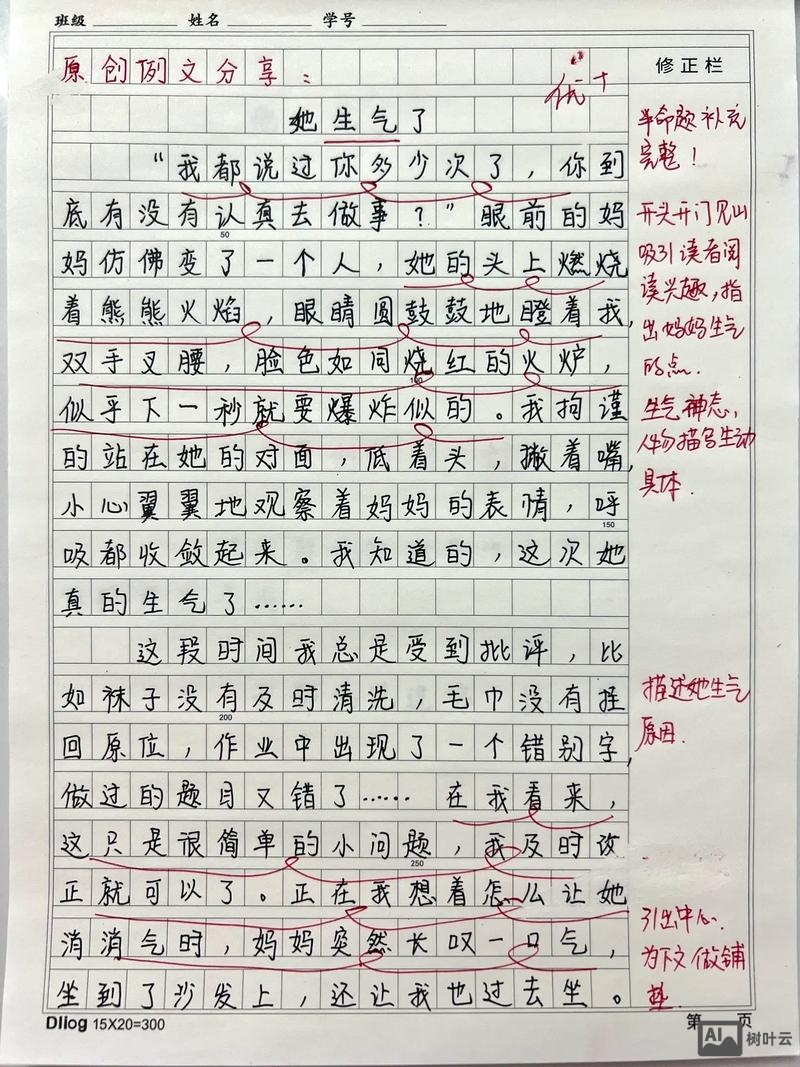 班级 姓名 学号
原创例文分享：
修正栏
优+
她生气了
半命题补充
完整！
“我都说过你多少次了，你到
底有没有认真去做事？”眼前的妈
50
妈仿佛变了一个人，她的头上燃烧
着熊熊火焰，眼睛圆鼓鼓地瞪着我，
双手叉腰，脸色如同烧红的火炉，
100
似乎下一秒就要爆炸似的。我拘谨
的站在她的对面，低着头，撇着嘴，
小心翼翼地观察着妈妈的表情，呼
150
吸都收敛起来。我知道的，这次她
真的生气了……
开头开门见山
吸引读者阅
读兴趣，指
出妈妈生气
的点.
生气神态，
人物描写生动
具体.
这段时间我总是受到批评，比
如袜子没有及时清洗，毛巾没有挂
200
回原位，作业中出现了一个错别字，
做过的题目又错了……在我看来，
这只是很简单的小问题，我及时改
250
正就可以了。正在我想着怎么让她
消消气时，妈妈突然长叹一口气，
坐到了沙发上，还让我也过去坐。
描述她生气
原因.
引出中心.
为下文做铺
垫.
Dllog 15X20=300
第 页
AI 树叶云